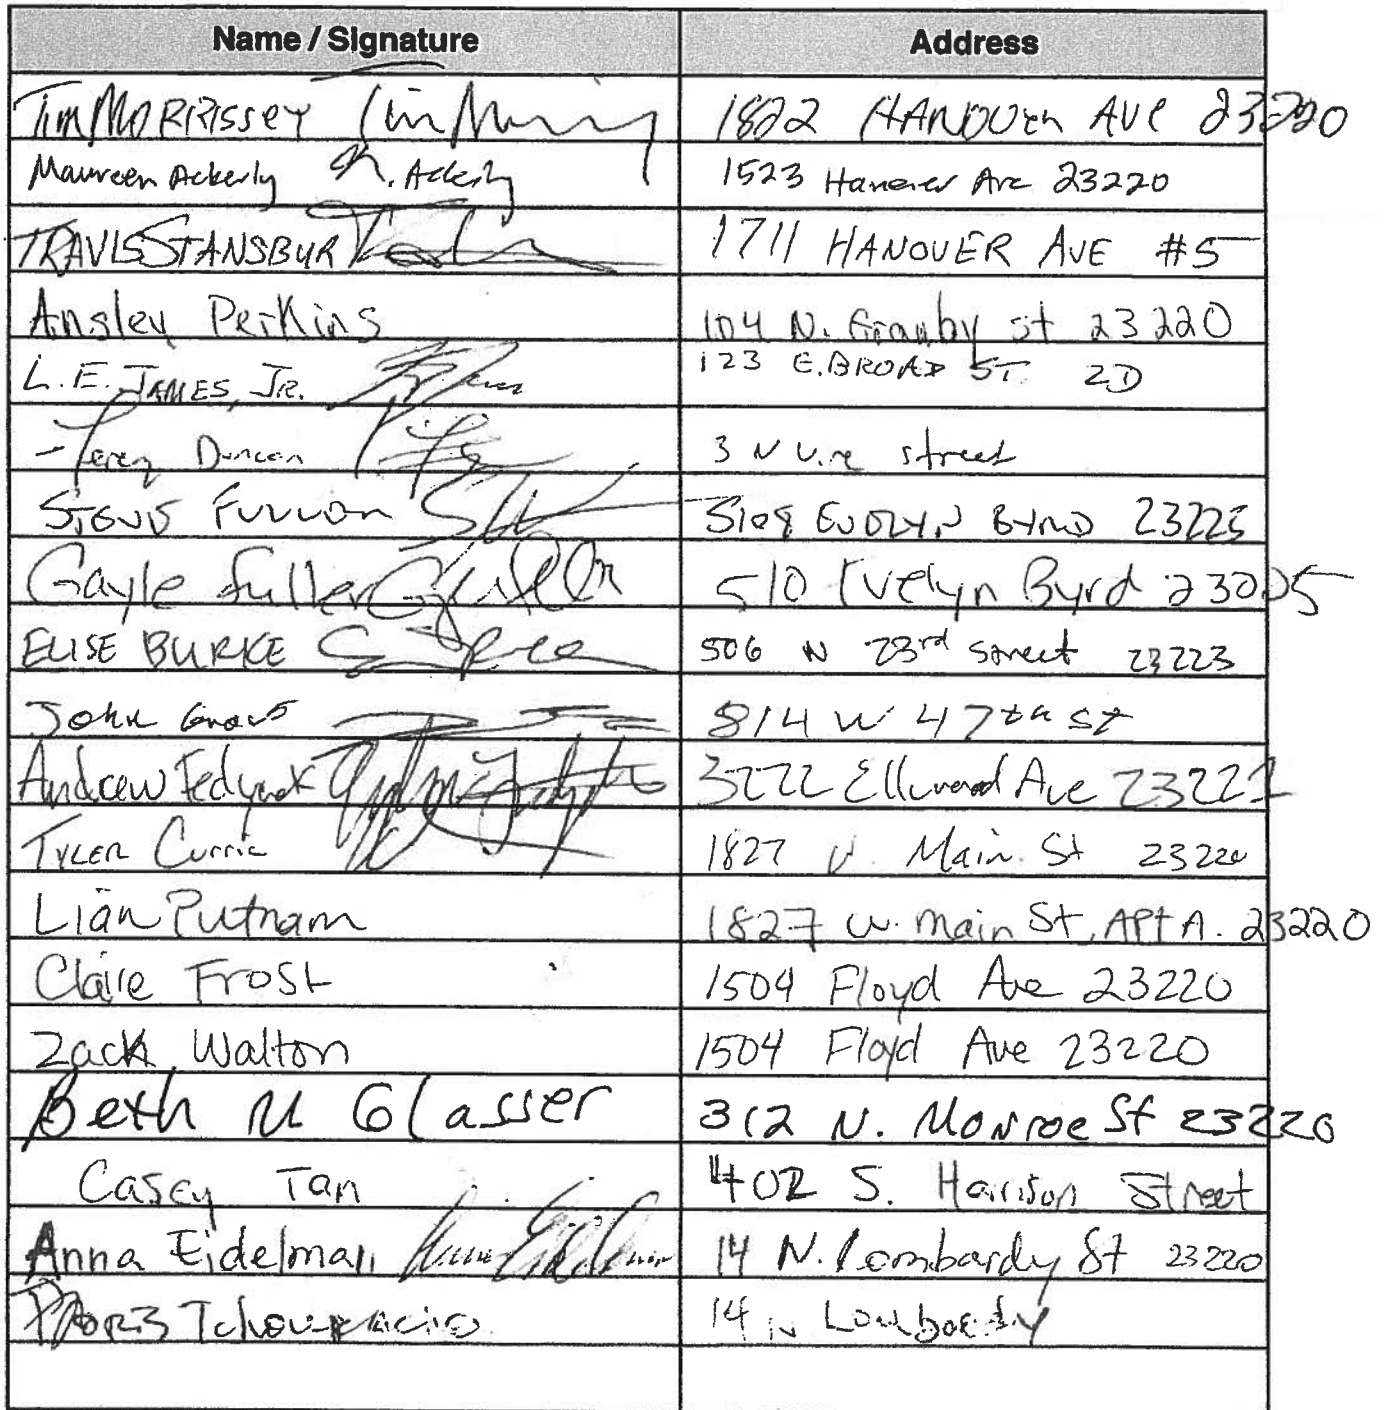 Name / Signature Address
Tim MORRISSEY Tim 1822 HANOVER AVE 23220
Maureen Ackerly M. Ackerly 1523 Hanover Ave 23220
TRAVIS STANSBUR 1711 HANOVER AVE #5
Ansley Perkins 104 N. Granby st 23220
L.E. JAMES, JR. 123 E. BROAD ST. 2D
Duncan 3 N Vine street
Gayle Fuller 510 Evelyn Byrd
ELISE BURKE 506 N 23rd Street 23223
John 814 W 47th St
Andrew 3222 Ellwood Ave 23221
TYLER Currie 1827 W. Main St 23220
Lian Putnam 1827 W. Main St, APT A. 23220
Claire Frost 1504 Floyd Ave 23220
Zack Walton 1504 Floyd Ave 23220
Beth M Glasser 312 N. Monroe St 23220
Casey Tan 402 S. Harrison Street
Anna Eidelman 14 N. Lombardy St 23220
14 N Lombardy